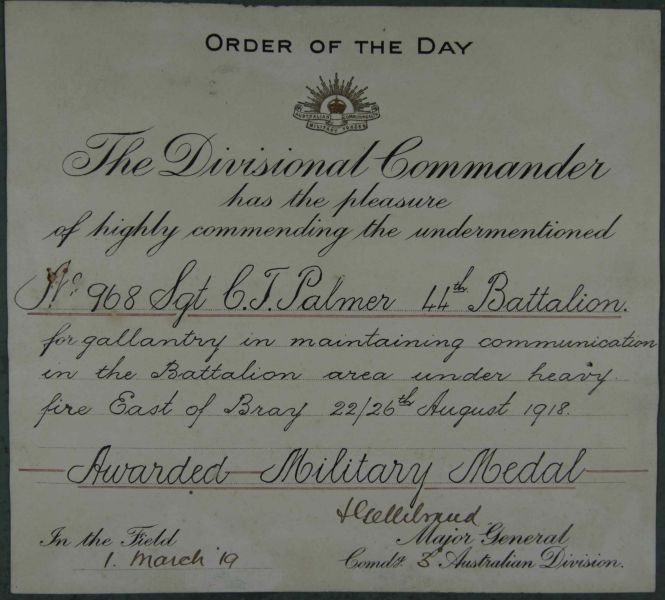 ORDER OF THE DAY
AUSTRALIAN COMMONWEALTH
MILITARY FORCES
The Divisional Commander
has the pleasure
of highly commending the undermentioned
No. 968 Sgt C.T. Palmer 44th Battalion.
for gallantry in maintaining communication
in the Battalion area under heavy
fire East of Bray 22/26th August 1918.
Awarded Military Medal
In the Field
1. March 19
Major General
Comdg. 3 Australian Division.